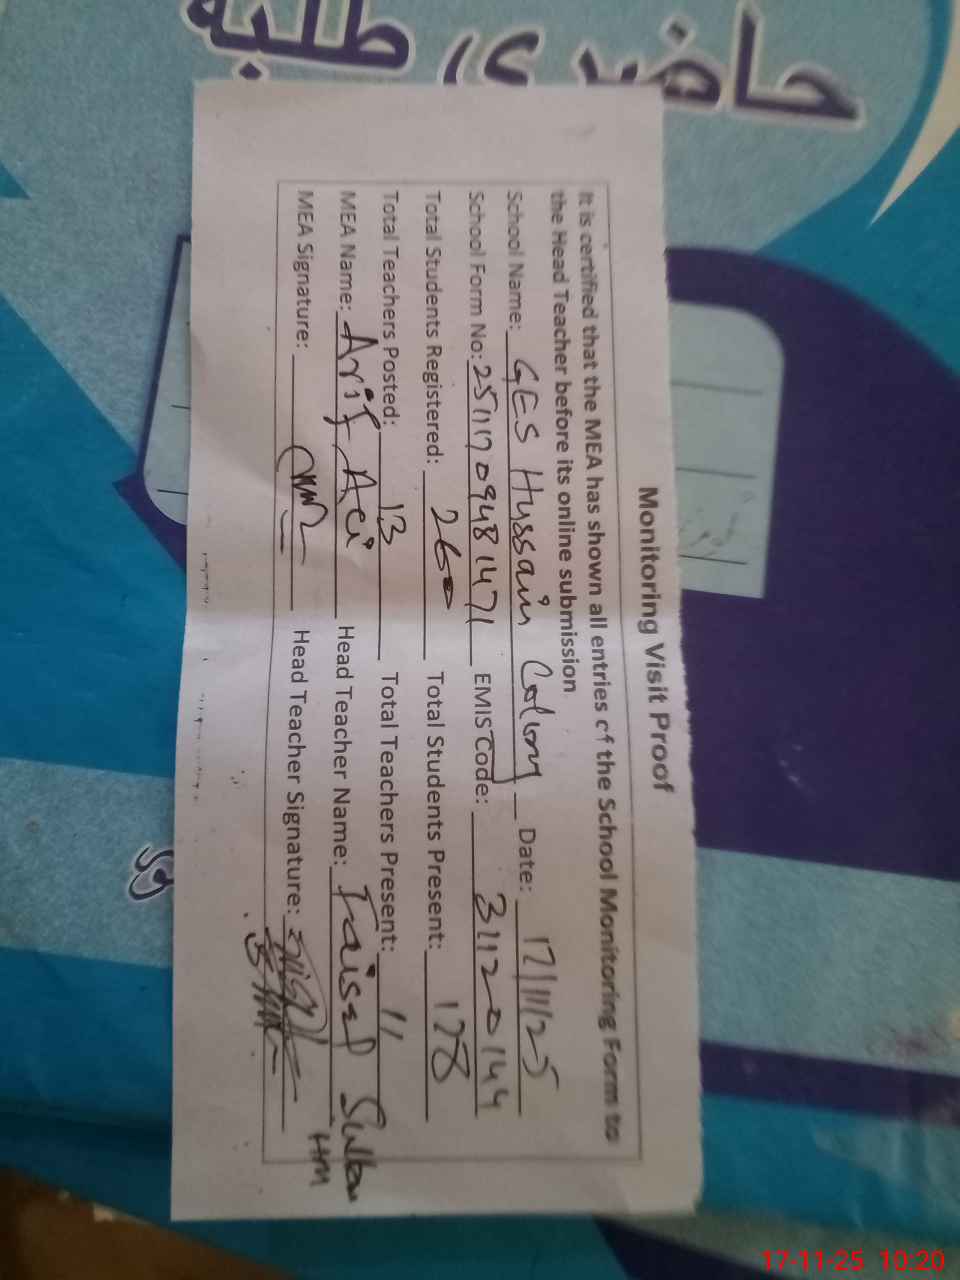 حاضری طلبہ
Monitoring Visit Proof
It is certified that the MEA has shown all entries of the School Monitoring Form to
the Head Teacher before its online submission
School Name: GES Hussain Colony Date: 17/11/25
School Form No: 251117 0948 1471 EMIS Code: 31120144
Total Students Registered: 260 Total Students Present: 178
Total Teachers Posted: 13 Total Teachers Present: 11
MEA Name: Arif Ali Head Teacher Name: Faisal Sultan
HM
MEA Signature: Head Teacher Signature:
17-11-25 10:20